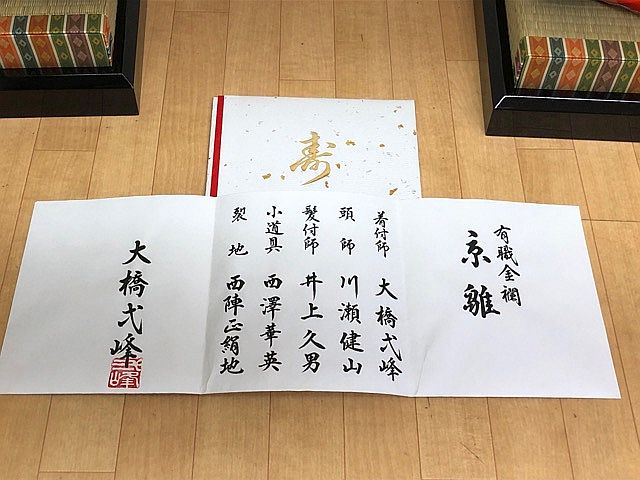 寿
有職金襴
京雛
着付師 大橋弌峰
頭師 川瀬健山
髪付師 井上久男
小道具 西澤華英
裂地 西陣正絹地
大橋弌峰
弌峰